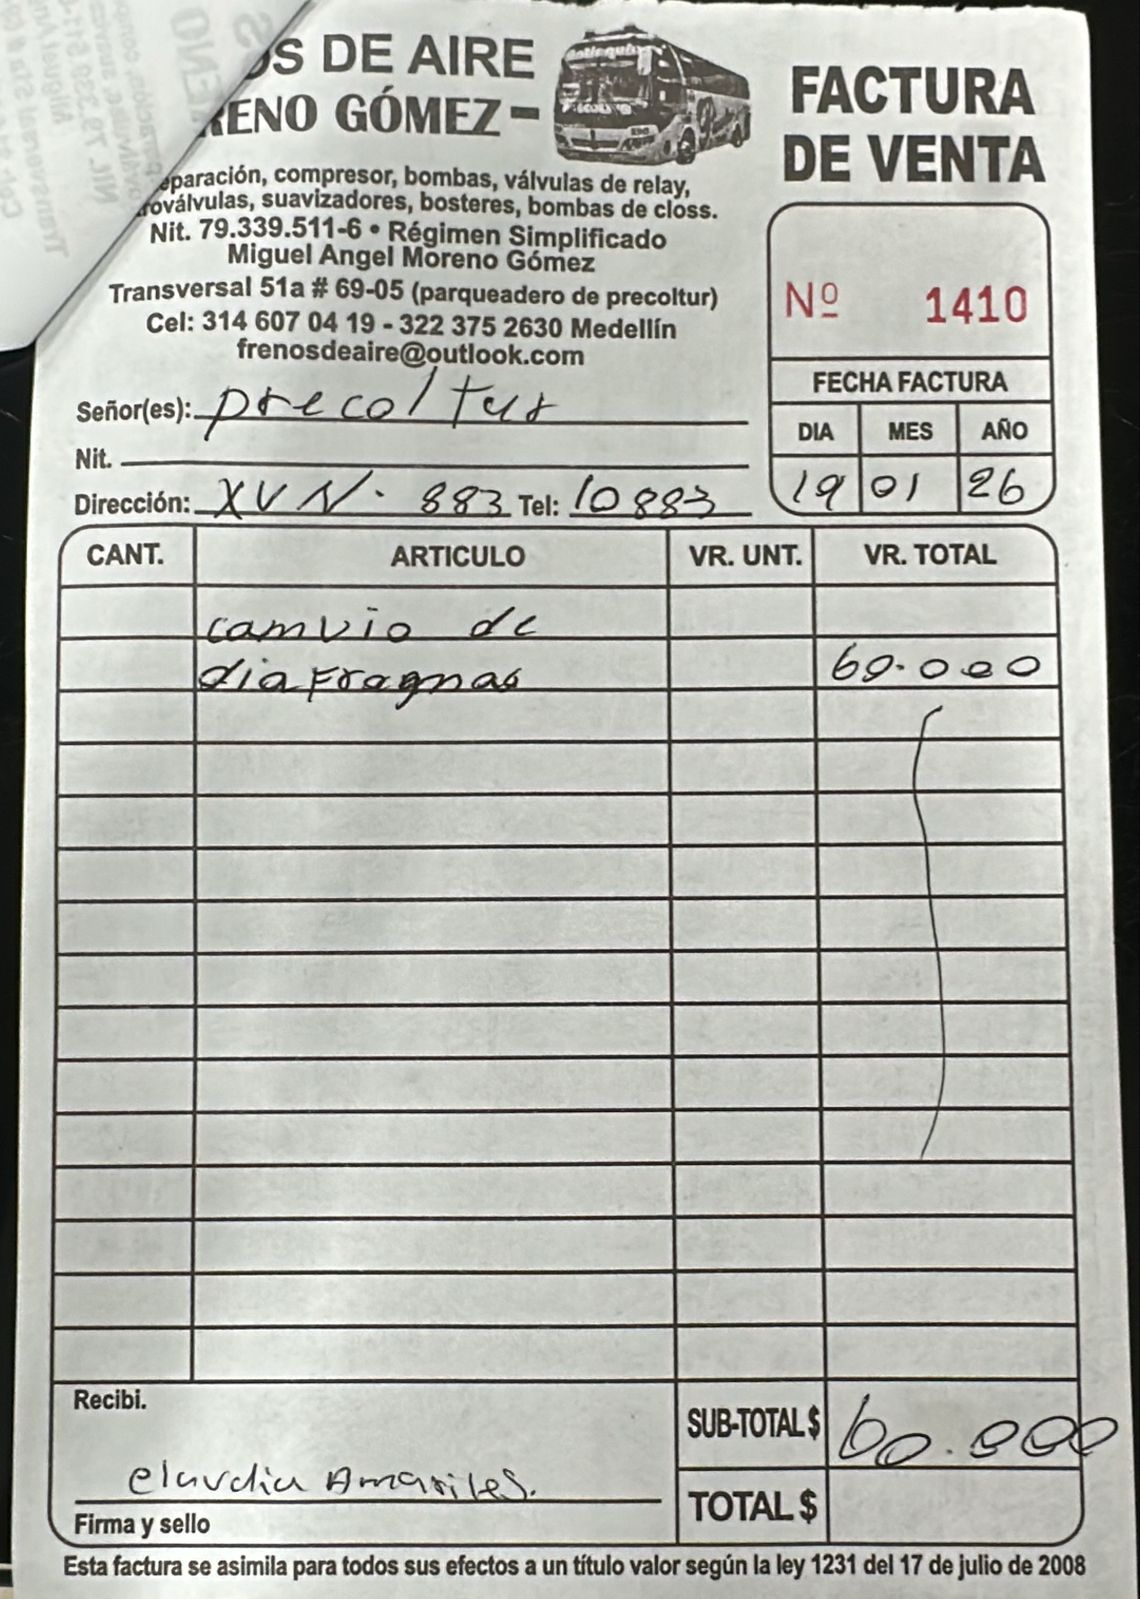 OS DE AIRE
RENO GÓMEZ -
FACTURA
DE VENTA
eparación, compresor, bombas, válvulas de relay,
roválvulas, suavizadores, bosteres, bombas de closs.
Nit. 79.339.511-6 • Régimen Simplificado
Miguel Angel Moreno Gómez
Transversal 51a # 69-05 (parqueadero de precoltur)
Cel: 314 607 04 19 - 322 375 2630 Medellín
frenosdeaire@outlook.com
Nº 1410
FECHA FACTURA
DIA MES AÑO
19 01 26
Señor(es): precoltur
Nit.
Dirección: XVN. 883 Tel: 10883
CANT. ARTICULO VR. UNT. VR. TOTAL
camvio de
diafragmas 60.000
Recibi.
SUB-TOTAL $ 60.000
claudia Amariles.
Firma y sello
TOTAL $
Esta factura se asimila para todos sus efectos a un título valor según la ley 1231 del 17 de julio de 2008